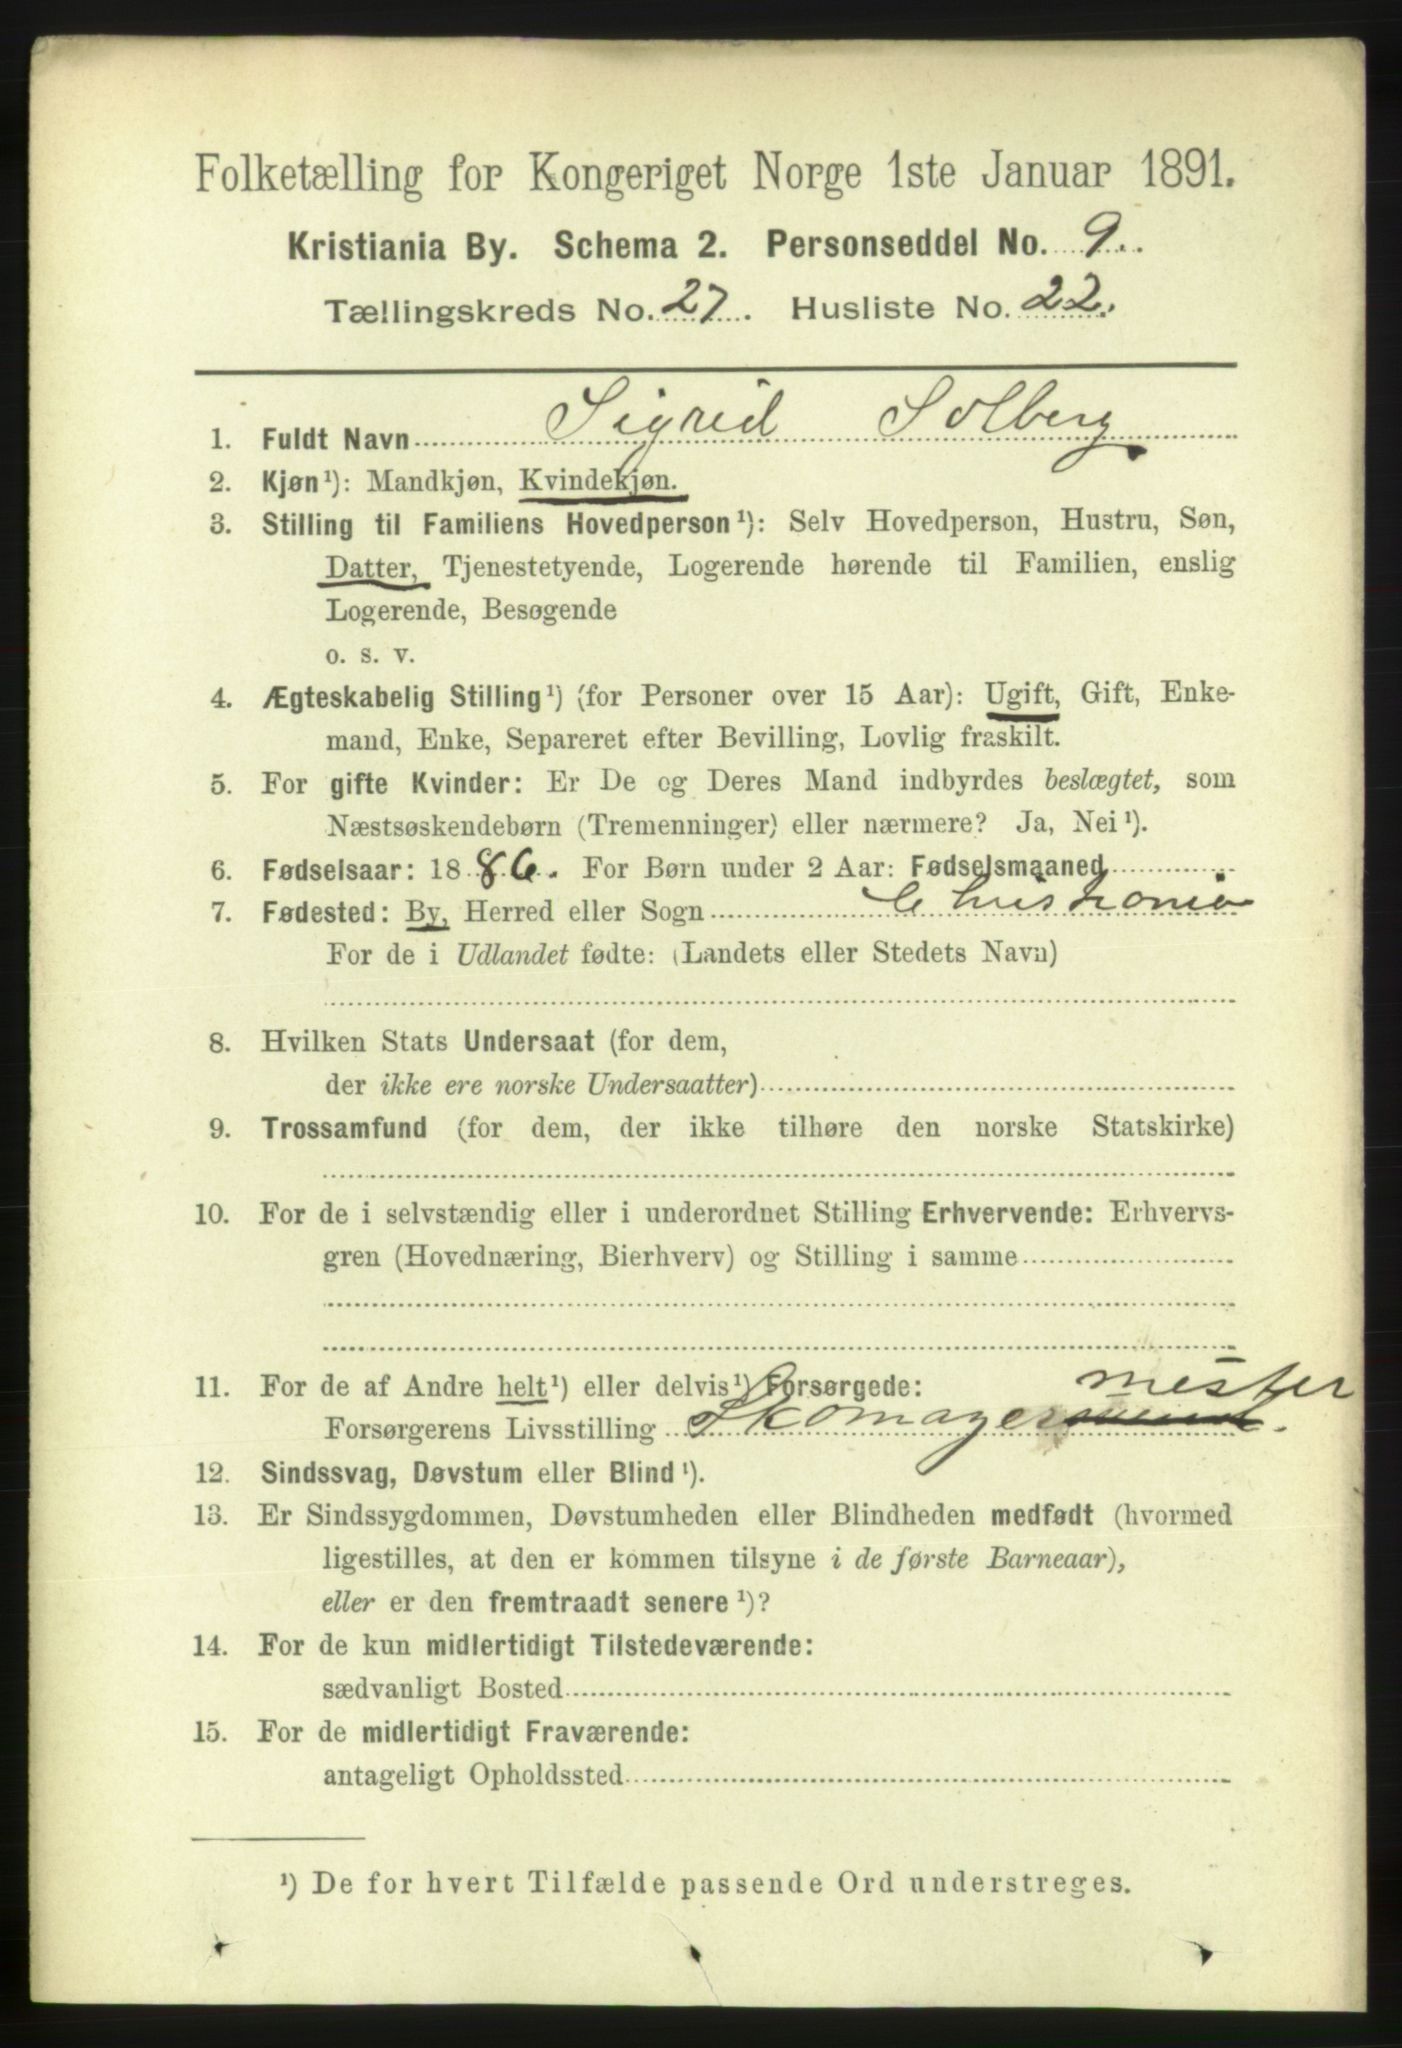 Folketælling for Kongeriget Norge 1ste Januar 1891.
Kristiania By. Schema 2. Personseddel No. 9.
Tællingskreds No. 27. Husliste No. 22.
1. Fuldt Navn Sigrid Solberg
2. Kjøn¹): Mandkjøn, Kvindekjøn.
3. Stilling til Familiens Hovedperson¹): Selv Hovedperson, Hustru, Søn,
Datter, Tjenestetyende, Logerende hørende til Familien, enslig
Logerende, Besøgende
o. s. v.
4. Ægteskabelig Stilling¹) (for Personer over 15 Aar): Ugift, Gift, Enke-
mand, Enke, Separeret efter Bevilling, Lovlig fraskilt.
5. For gifte Kvinder: Er De og Deres Mand indbyrdes beslægtet, som
Næstsøskendebørn (Tremenninger) eller nærmere? Ja, Nei¹).
6. Fødselsaar: 1886. For Børn under 2 Aar: Fødselsmaaned
7. Fødested: By, Herred eller Sogn Christiania
For de i Udlandet fødte: (Landets eller Stedets Navn)
8. Hvilken Stats Undersaat (for dem,
der ikke ere norske Undersaatter)
9. Trossamfund (for dem, der ikke tilhøre den norske Statskirke)
10. For de i selvstændig eller i underordnet Stilling Erhvervende: Erhvervs-
gren (Hovednæring, Bierhverv) og Stilling i samme
11. For de af Andre helt¹) eller delvis¹) Forsørgede: mester
Forsørgerens Livsstilling Skomager
12. Sindssvag, Døvstum eller Blind¹).
13. Er Sindssygdommen, Døvstumheden eller Blindheden medfødt (hvormed
ligestilles, at den er kommen tilsyne i de første Barneaar),
eller er den fremtraadt senere¹)?
14. For de kun midlertidigt Tilstedeværende:
sædvanligt Bosted
15. For de midlertidigt Fraværende:
antageligt Opholdssted
¹) De for hvert Tilfælde passende Ord understreges.